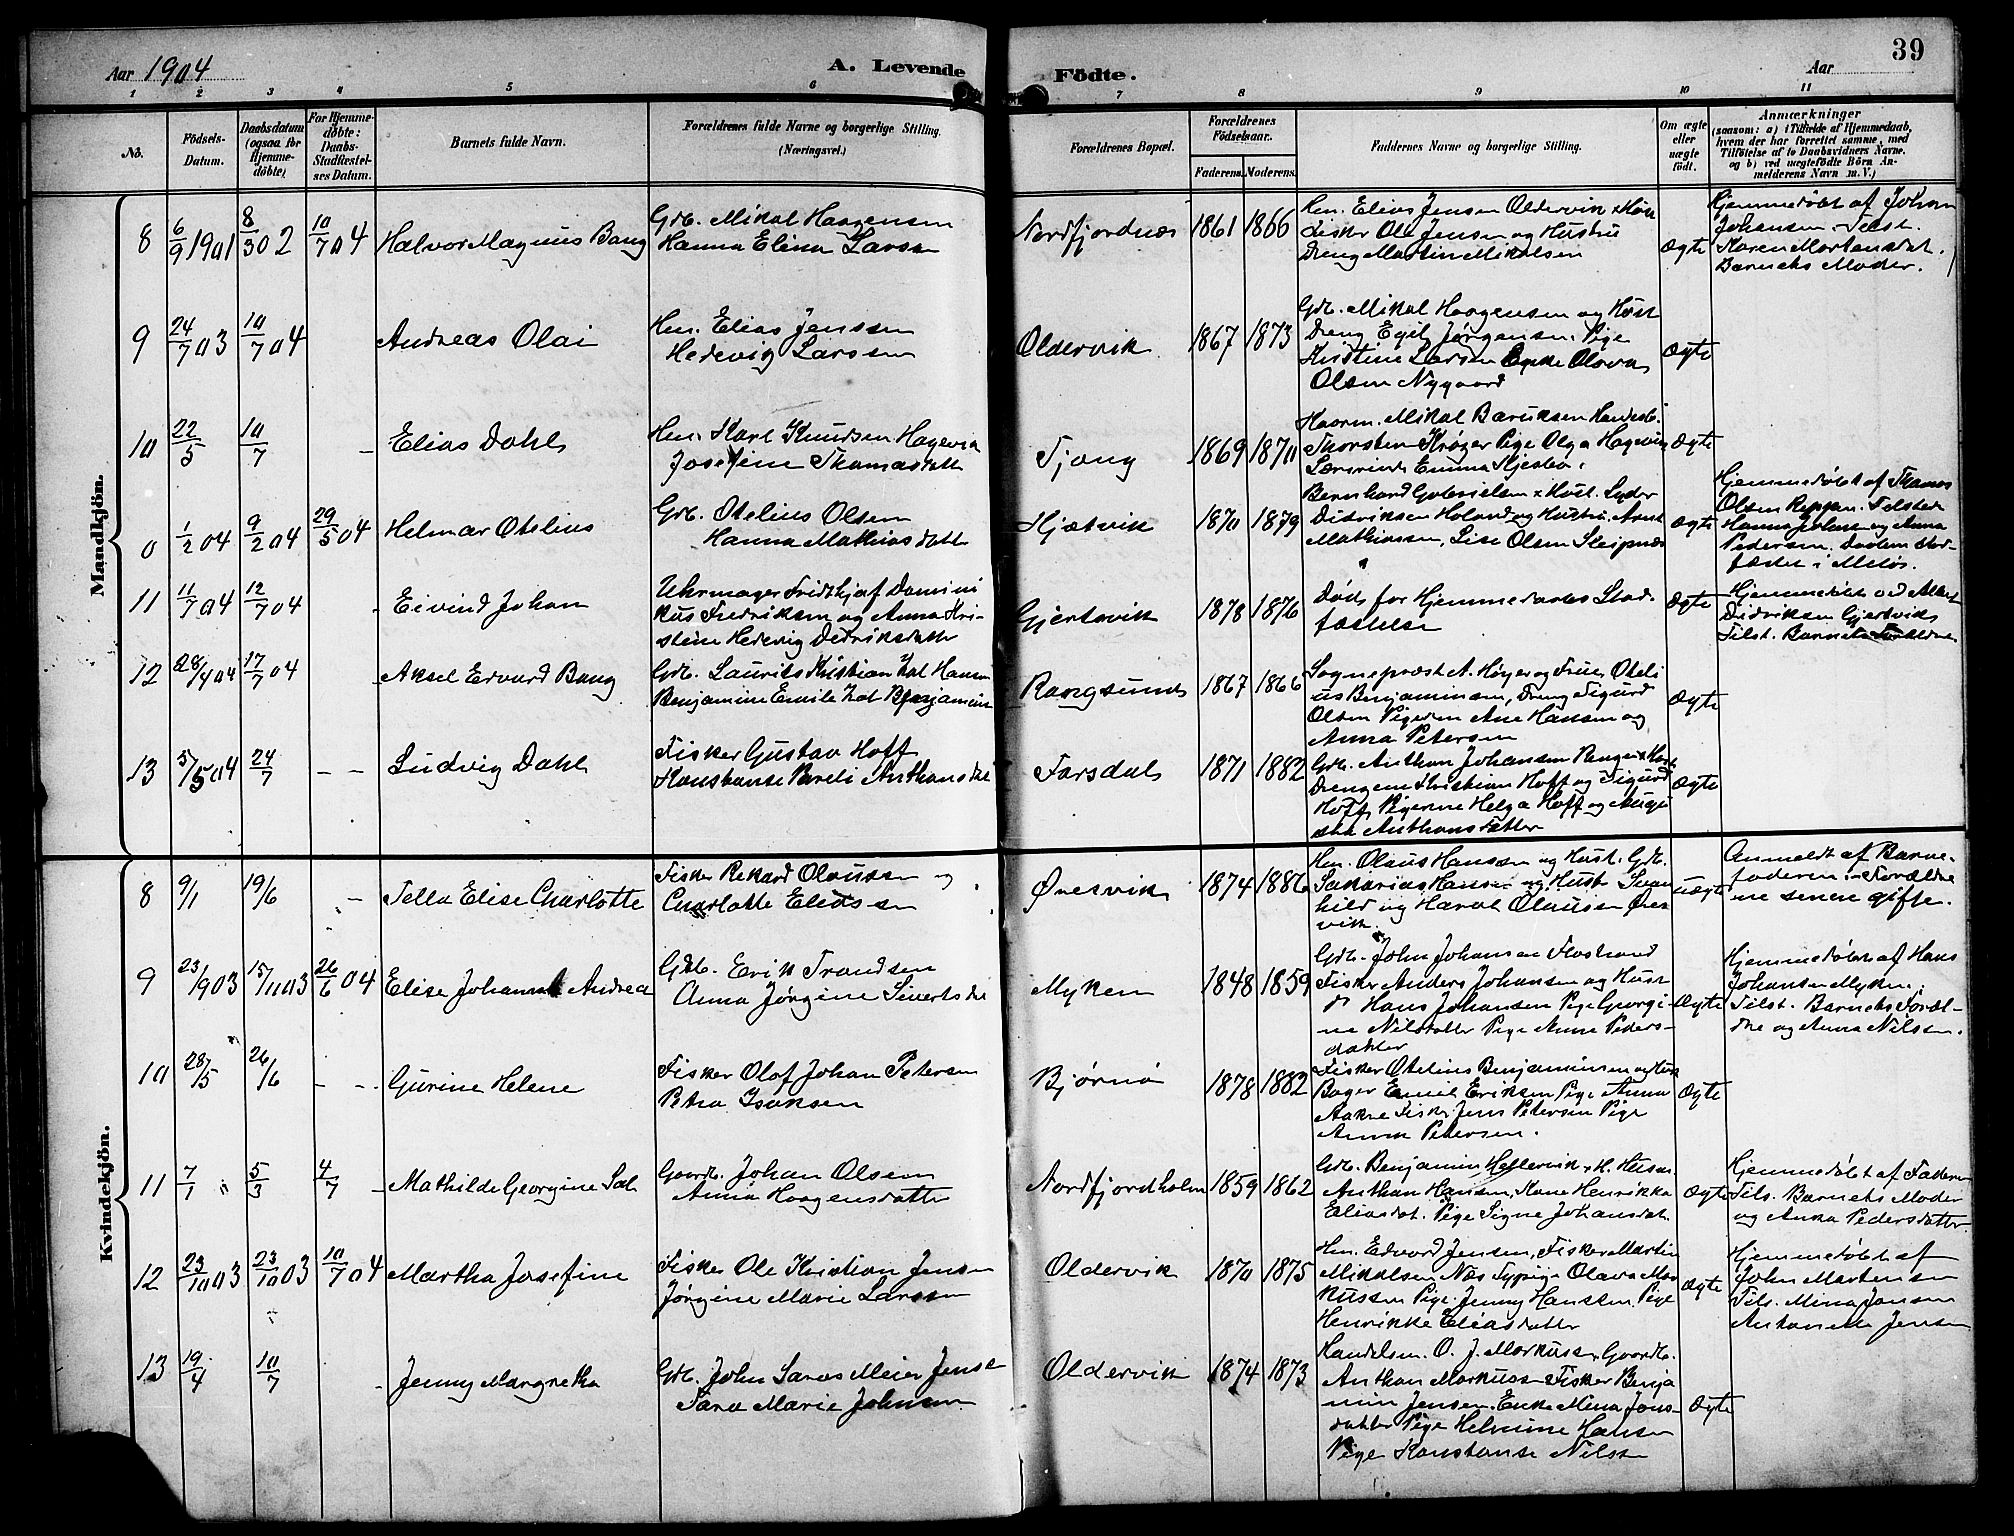 Aar 1904
A. Levende
Födte.
Aar
39
1 2 3 4 5 6 7 8 9 10 11
No.
Födsels-
Datum.
Daabsdatum
(ogsaa for
Hjemme-
döbte)
For Hjemme-
döbte:
Daabs-
Stadfæstel-
ses Datum.
Barnets fulde Navn.
Forældrenes fulde Navne og borgerlige Stilling.
(Næringsvei.)
Forældrenes Bopæl.
Forældrenes
Födselsaar.
Faderens. Moderens.
Faddernes Navne og borgerlige Stilling.
Om ægte
eller
uægte
født.
Anmærkninger
(saasom: a) i Tilfælde af Hjemmedaab,
hvem der har forrettet samme, med
Tilföielse af to Daabsvidners Navne.
og b) ved uægtefödte Börn An-
melderens Navn m. V.)
Mandkjön.
8 6/9 1901 8/3 02 10/7 04 Halvor Magnus Bang
Gdb. Mikal Haagensen
Hanna Elina Larsen
Nordfjordnæs 1861 1866
Hen. Elias Jensen Oldervik
Fisker Ole Jensen og Hustru
Dreng Martin Mikalsen
Ægte
Hjemmedøbt af Johan
Johansen. Test.
Karen Mortensdat.
Barnets Moder.
9 24/7 03 10/7 04 Andreas Olai
Hen. Elias Jenssen
Hedevig Larsen
Oldervik 1867 1873
Gdb. Mikal Haagensen og Hust
Dreng Egil Jørgensen. Pige
Kristine Larsen Enke Olava
Olsen Nygaard
Ægte
10 22/5 10/7 - Elias Dahl
Hen. Karl Knudsen
Josefine Thomasdatt
Tjong 1869 1870
Haarm. Mikal Baruksen Handelsb.
Thorsten Krøger Pige Olga
Lærerinde Emma
Ægte
0 1/2 04 9/2 04 29/5 04 Helmar Otelius
Gdb. Otelius Olsen
Hanna Mathiasdatt
1870 1879
Bernhard Gabrielsen Hust.
Didriksen Holand og Hustru
Mathiassen, Lise Olsen Sleipnæs
Ægte
Hjemmedøbt af Thomas
Olsen Reppen. Tilstede
Hanna Johnsen og Anna
Pedersen. Daaben stad-
fæstet i Meløs.
11 11/7 04 12/7 04 - Eivind Johan
Uhrmager Fridthjof Domini
kus Fredriksen og Anna Kri-
stine Hedevig Didriksdatte
Gjertsvik 1878 1876
Død før Hjemmedaabs Stad-
fæstelse
Ægte
Hjemmedøbt ved Albert
Didriksen Gjertsvik
Tilst. Barnets Forældre
12 28/4 04 17/7 04 - Aksel Edvard Bang
Gdb. Laurits Kristian Zal Hansen
Benjamine Emilie Zal Benjamins
Rangsund 1867 1866
Sognepræst A. Høyer og Frue, Oteli
us Benjaminsen, Dreng Sigurd
Olsen Pigerne Ane Hansen og
Anna Petersen
Ægte
13 5/5 04 24/7 - - Ludvig Dahl
Fisker Gustav Hoff
Konstanse Pareli Anthonsdat
Farsdal 1871 1882
Gdb. Anthon Johansen
Drengene Kristian Hoff og Sigurd
Hoff, Pigerne Helga Hoff og Augu
sta Anthonsdatter
Ægte
Kvindekjön.
8 9/1 19/6 - Tella Elise Charlotte
Fisker Rekard Olaussen og
Charlotte Eliassen
Øresvik 1874 1886
Hen. Olaus Hansen og Hust. Gdb.
Sakarias Hansen og Hust Svan
hild og Haral Olausen Øres
vik.
uægte
Anmeldt af Barne-
faderen. Forældre
ne senere gifte.
9 23/9 03 15/11 03 26/6 04 Elise Johanna Andrea
Gdb. Erik Trondsen
Anna Jørgine Sivertsdat
Myken 1848 1859
Gdb. John Johansen
Fisker Anders Johansen og Hust
Hans Johansen Pige Georgi-
ne Nilsdatter Pige Anne Peders-
datter
Ægte
Hjemmedøbt af Hans
Johansen Myken.
Tilst. Barnets Foræl-
dre og Anna Nilsen.
10 28/5 26/6 - - Gurine Helene
Fisker Olaf Johan Petersen
Petra Isaksen
Bjørnø 1878 1882
Fisker Otelius Benjaminsen og Hust
Bager Emil Eriksen Pige Anna
Aakre Fisker Jens Petersen Pige
Anna Petersen.
Ægte
11 7/1 5/3 4/7 - Mathilde Georgine Sal
Gaardb. Johan Olsen
Anna Haagensdatter
Nordfjordholm 1859 1862
Gdb. Benjamin Hellervik
Anthon Hansen, Kone Henrikka
Eliasdat. Pige Signe Johansdat.
Ægte
Hjemmedøbt af Faderen
Tils. Barnets Moder
og Anna Pedersdatter
12 23/10 03 23/10 03 10/7 04 Martha Josefine
Fisker Ole Kristian Jensen
Jørgine Marie Larsen
Oldervik 1870 1875
Hen. Edvard Jensen, Fisker Martin
Mikalsen Næs Sypige Olava Mar
kussen Pige Jenny Hanssen, Pige
Henrikke Eliasdatter
Ægte
Hjemmedøbt af
John Mortensen
Tils. Mina Jonsen
Antonette Jensen
13 19/4 10/7 - Jenny Margretha
Gdb. John Saras Meier Jense
Sara Marie Johnsen
Oldervik 1874 1873
Handelsm. O. J. Markussen, Gaardb.
Anthon Markussen Fisker Benja
min Jensen. Enke Mina Jons-
datter Pige Helmine Hansen
Pige Konstanse Nilsen
Ægte